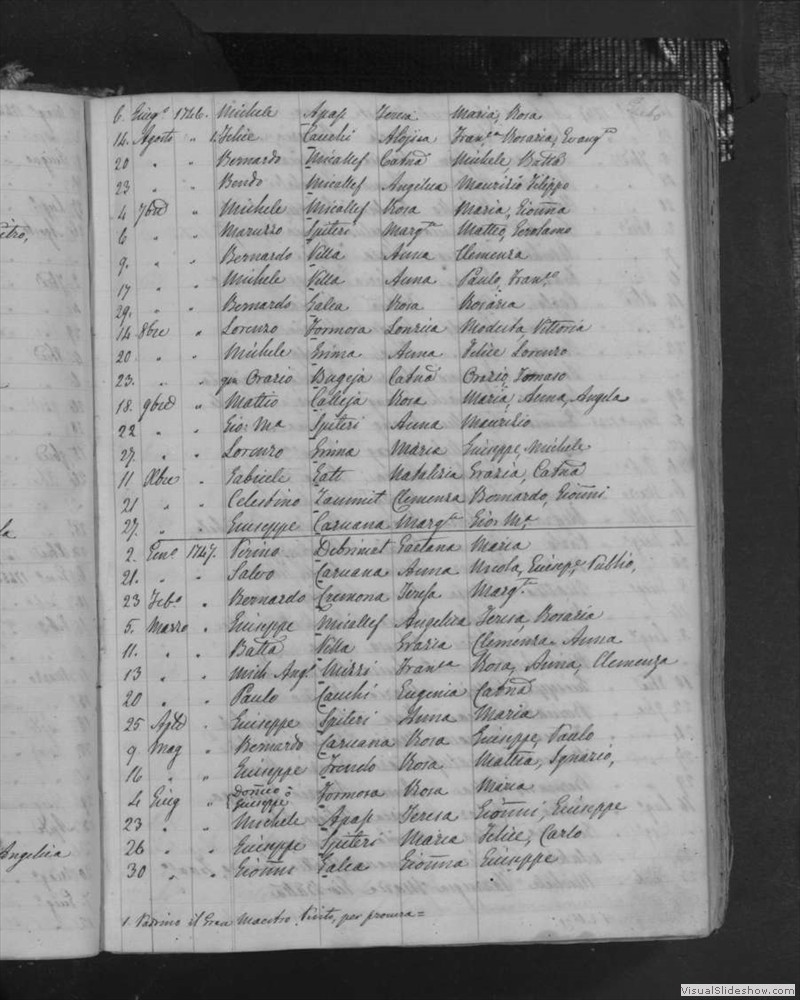 6. Giug.º 1746. Michele Apap Teresa Maria, Rosa
14. Agosto " 1. Felice Cauchi Aloisia Fran.ca Rosaria, Evang.ta
20 " " Bernardo Micallef Catnā Michele, Batta
23 " " Bendo Micallef Angelica Maurizio Filippo
4 7bre " Michele Micallef Rosa Maria, Gionna
6 " " Maruzzo Spiteri Marg.ta Matteo, Gerolamo
9. " " Bernardo Villa Anna Clemenza
17 " " Michele Villa Anna Paulo, Fran.co
29. " " Bernardo Galea Rosa Rosaria
14 8bre " Lorenzo Formosa Lonzica Modesta Vittoria
20 " " Michele Grima Anna Felice Lorenzo
23. " " qm Orazio Bugeja Catnā Orazio, Tomaso
18. 9bre " Matteo Calleja Rosa Maria, Anna, Angela
22 " " Gio: Mª Spiteri Anna Maurizio
27. " " Lorenzo Grima Maria Giuseppe, Michele
11 Xbre " Gabriele Zatt Natalizia Grazia, Catnā
21 " " Celestino Zammit Clemenza Bernardo, Gionni
27. " " Giuseppe Caruana Marg.ta Gio: Mª
2. Gen.º 1747. Pirino Debrincat Gaetana Maria
21. " " Salvo Caruana Anna Nicola, Giusepe, Publio,
23 Feb.º " Bernardo Cremona Teresa Marg.ta
5. Marzo " Giuseppe Micallef Angelica Teresa, Rosaria
11. " " Batta Villa Grazia Clemenza Anna
13 " " Mich Ang.º Mizzi Fran.ca Rosa, Anna, Clemenza
20 " " Paulo Cauchi Eugenia Catnā
25 Aple " Giuseppe Spiteri Anna Maria
9 Mag " Bernardo Caruana Rosa Giuseppe, Paulo
16 " " Giuseppe Frendo Rosa Mattia, Ignazio,
4 Giug " Domco ò Giuseppe Formosa Rosa Maria
23 " " Michele Apap Teresa Gionni, Giuseppe
26 " " Giuseppe Spiteri Maria Felice, Carlo
30 " " Gionni Galea Gionna Giuseppe
1. Padrino il Gran Maestro Pinto, per procura=
Angelica
VisualSlideshow.com